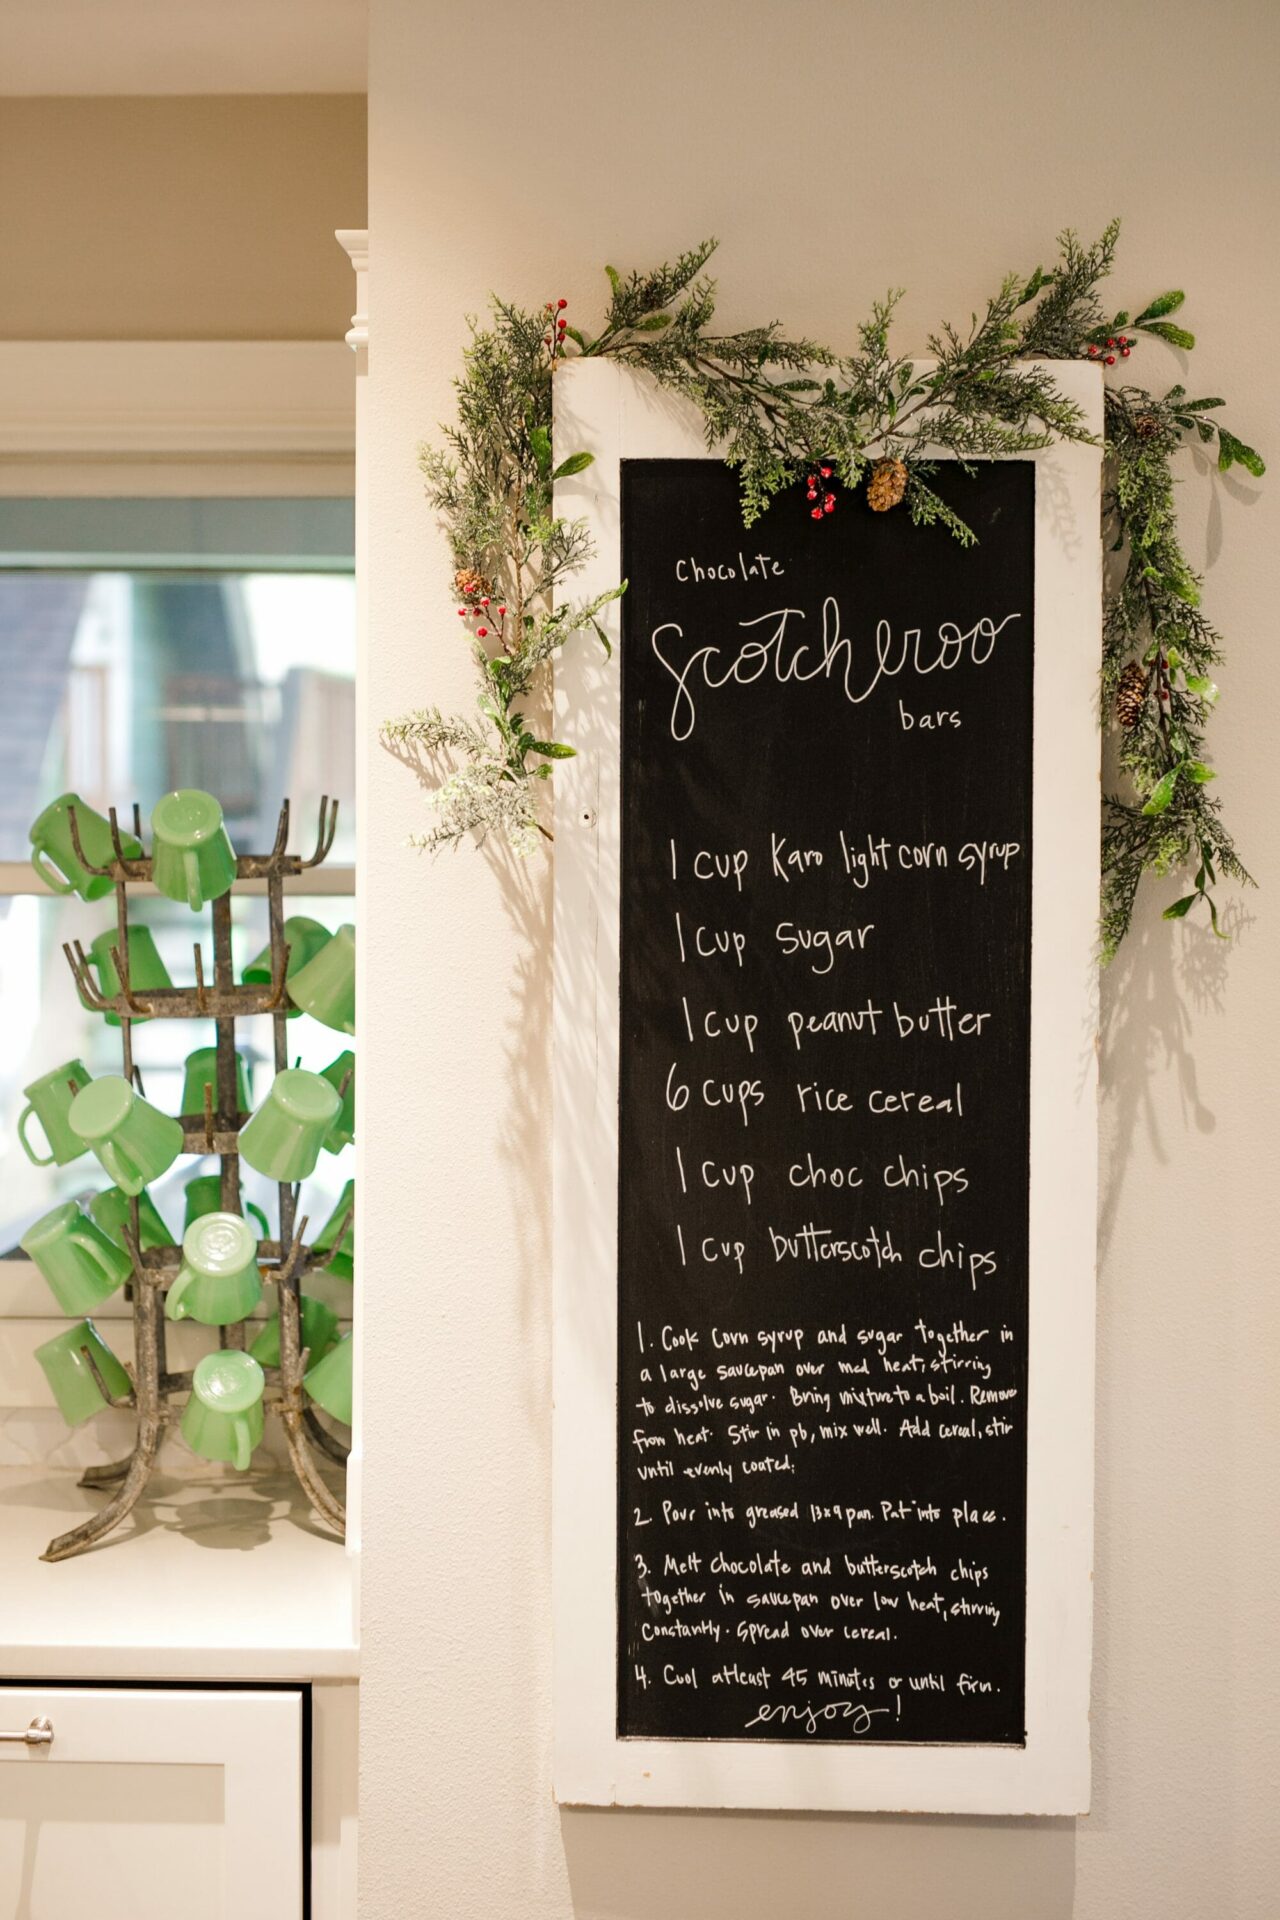 Chocolate
Scotcheroo
bars
1 cup Karo light corn syrup
1 cup sugar
1 cup peanut butter
6 cups rice cereal
1 cup choc chips
1 cup butterscotch chips
1. Cook corn syrup and sugar together in
a large saucepan over med heat, stirring
to dissolve sugar. Bring mixture to a boil. Remove
from heat. Stir in pb, mix well. Add cereal, stir
until evenly coated.
2. Pour into greased 13x9 pan. Pat into place.
3. Melt chocolate and butterscotch chips
together in saucepan over low heat, stirring
constantly. Spread over cereal.
4. Cool atleast 45 minutes or until firm.
enjoy!